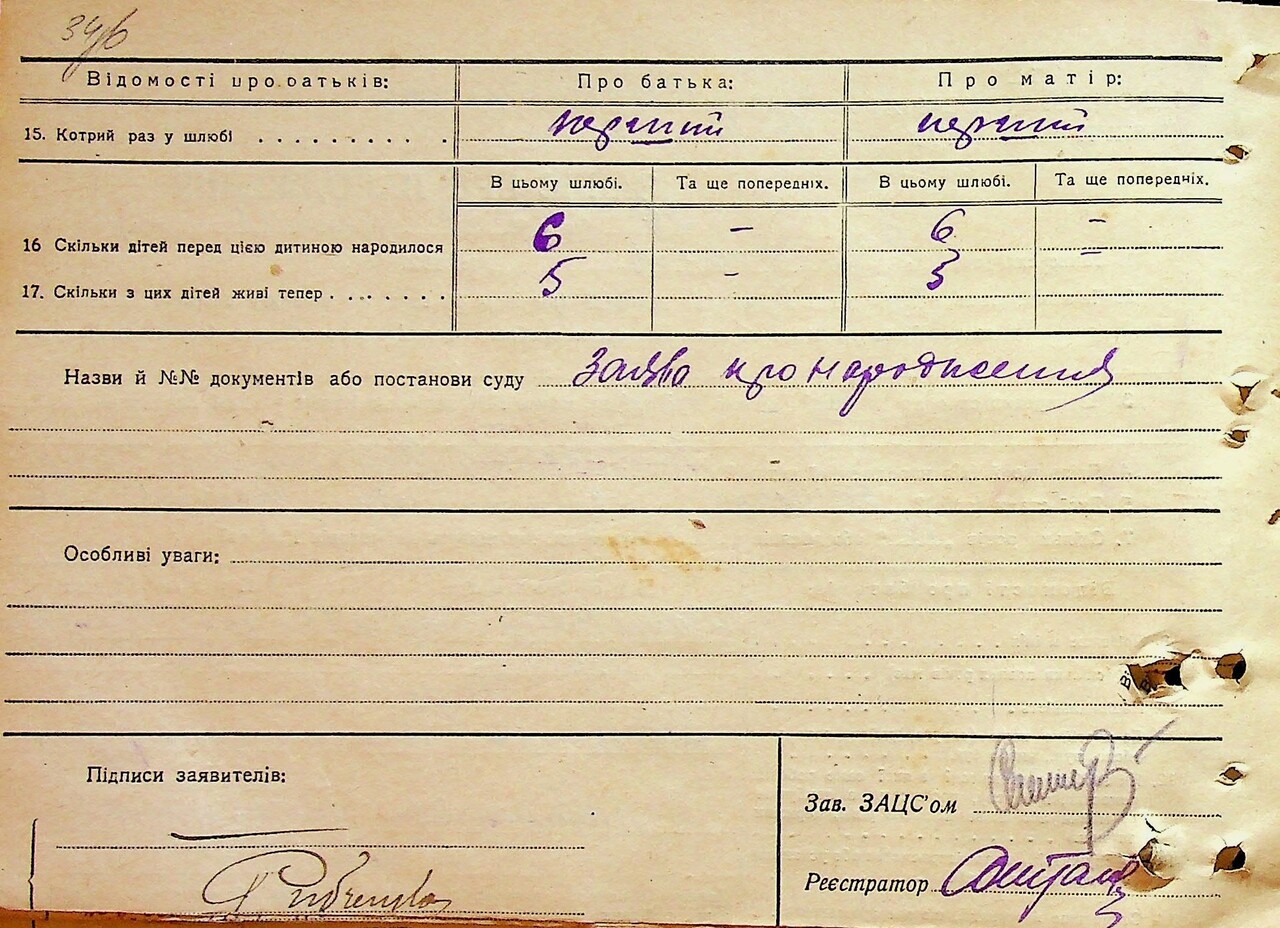 Відомості про батьків: Про батька: Про матір:
15. Котрий раз у шлюбі . . . . . . . . . . перший перший
В цьому шлюбі. Та ще попередніх. В цьому шлюбі. Та ще попередніх.
16 Скільки дітей перед цією дитиною народилося 6 – 6 –
17. Скільки з цих дітей живі тепер . . . . . . . 5 – 5 –
Назви й №№ документів або постанови суду Заява про народження
Особливі уваги:
Підписи заявителів:
Зав. ЗАЦС'ом
Реєстратор